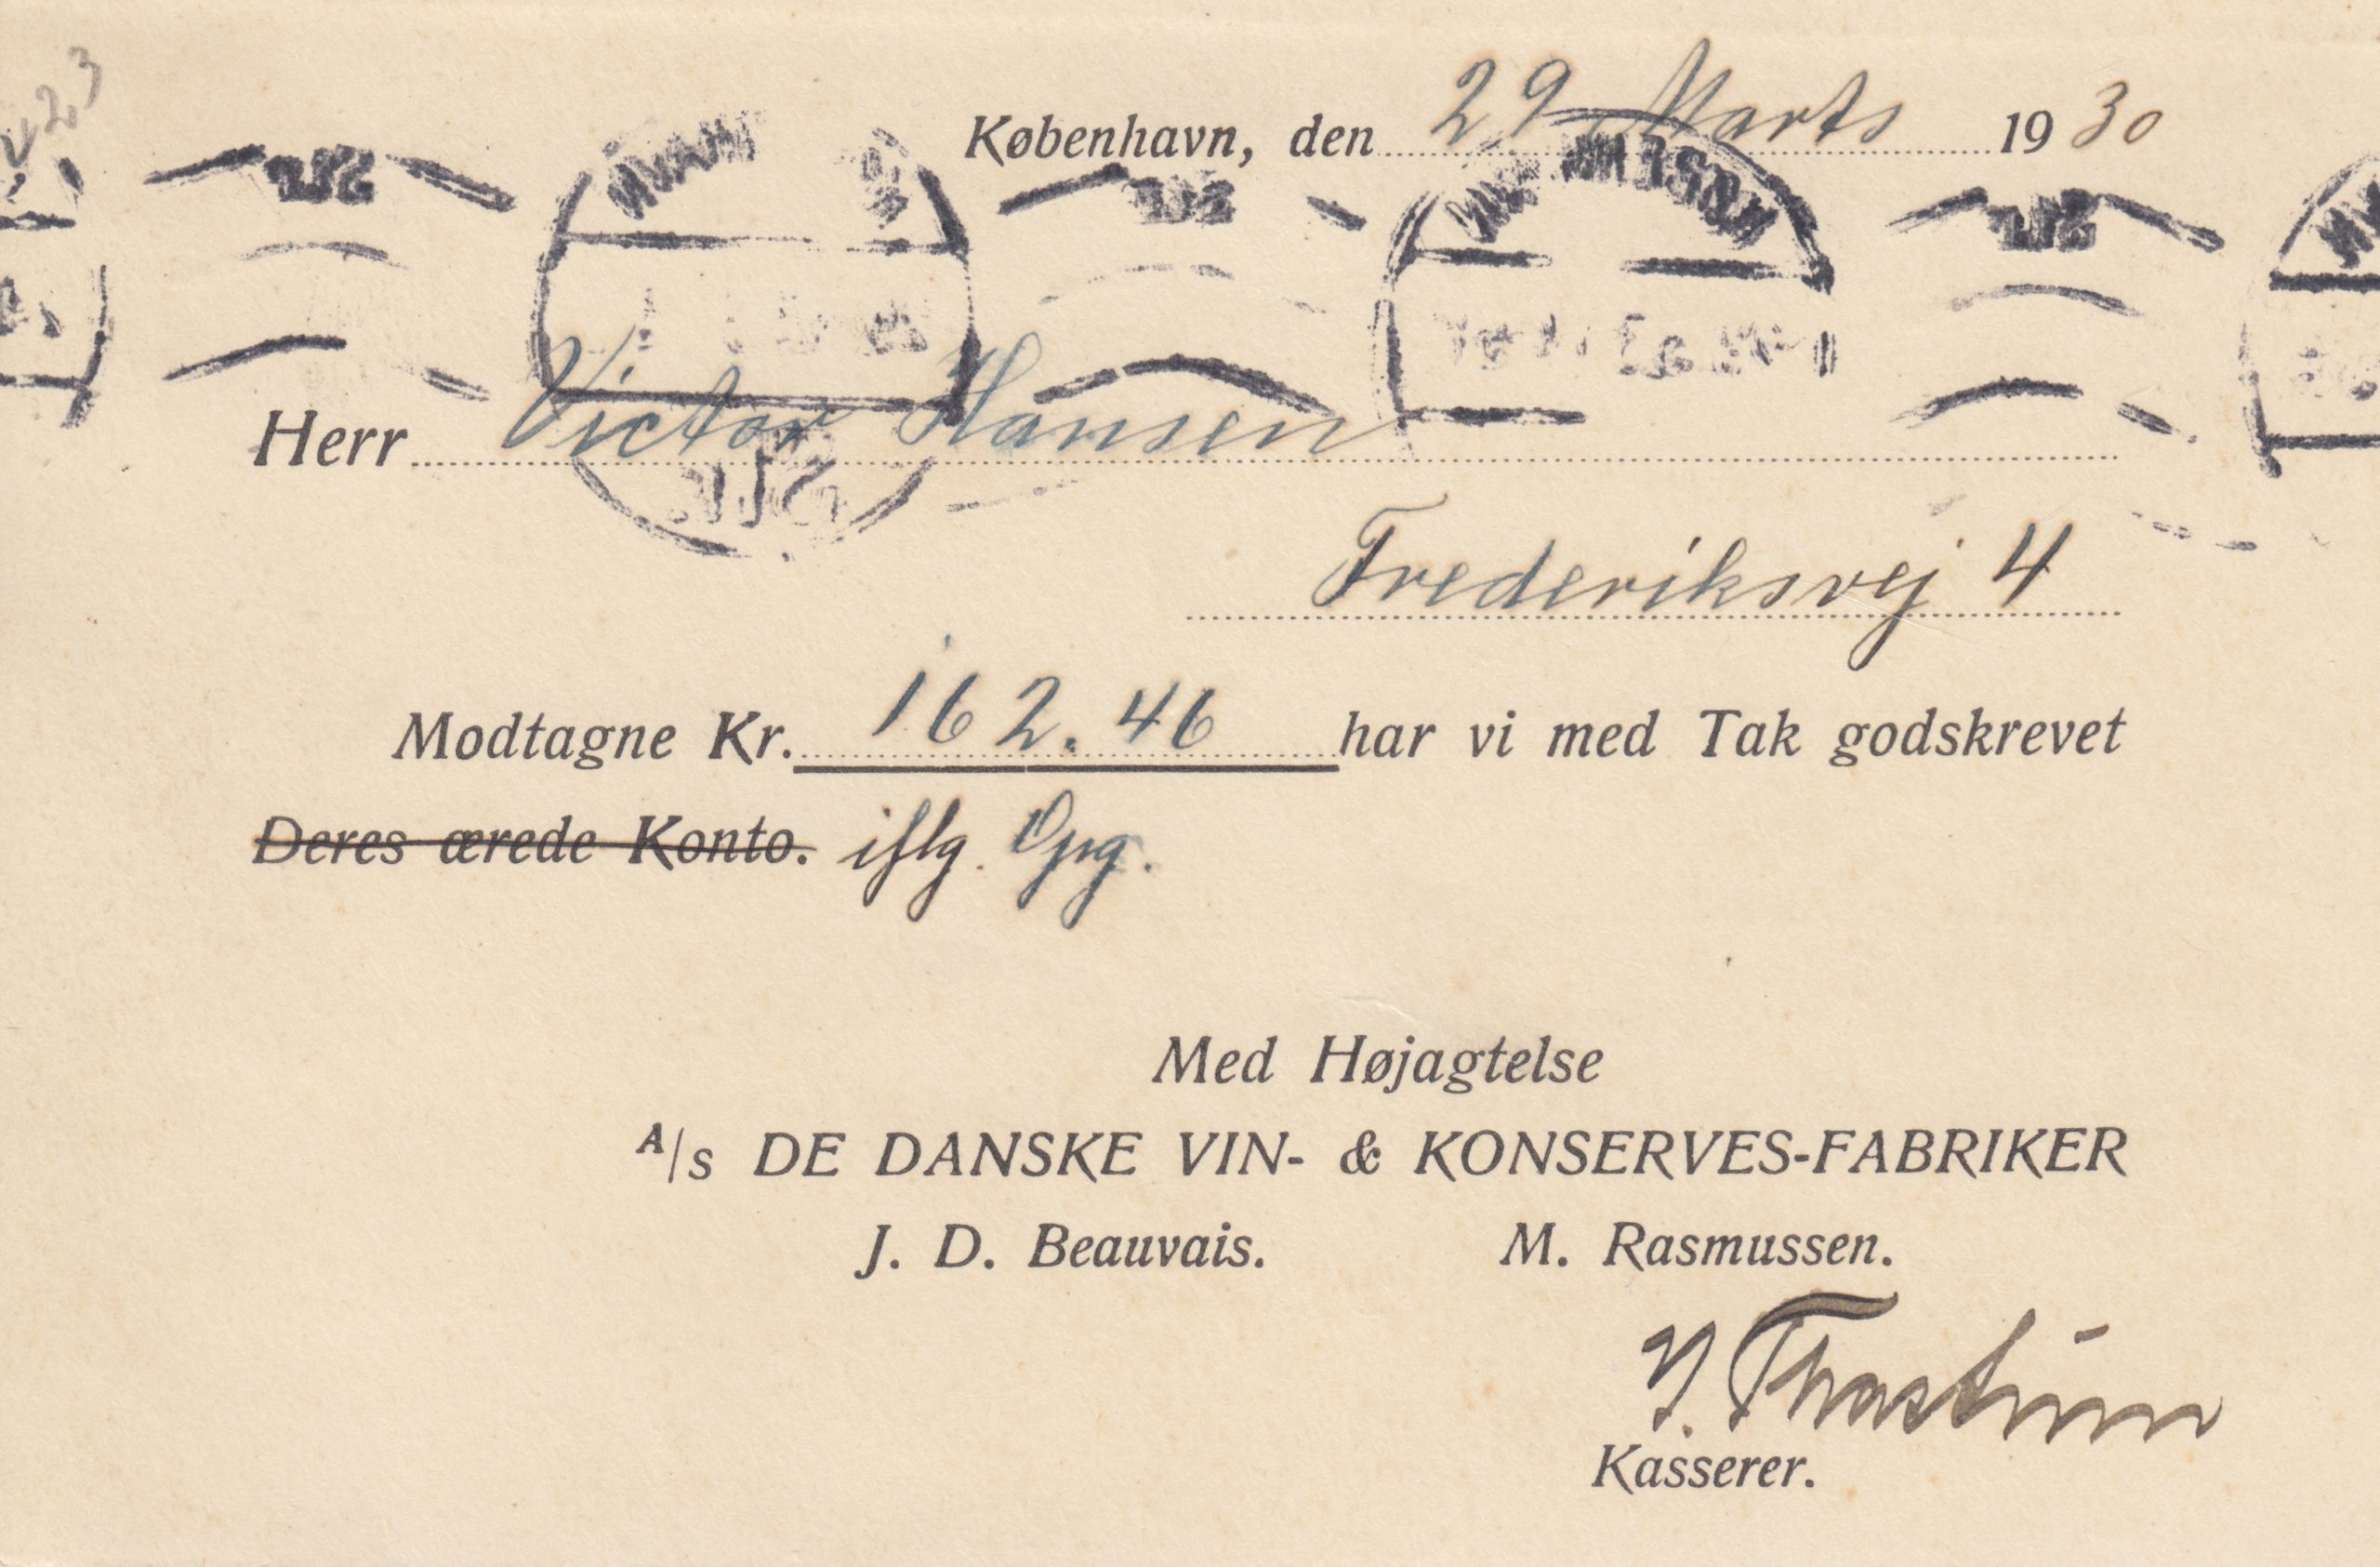 København, den 29 Marts 1930
Herr Victor Hansen
Frederiksvej 4
Modtagne Kr. 162.46 har vi med Tak godskrevet
Deres ærede Konto. iflg. Opg.
Med Højagtelse
A/s DE DANSKE VIN- & KONSERVES-FABRIKER
J. D. Beauvais. M. Rasmussen.
Kasserer.